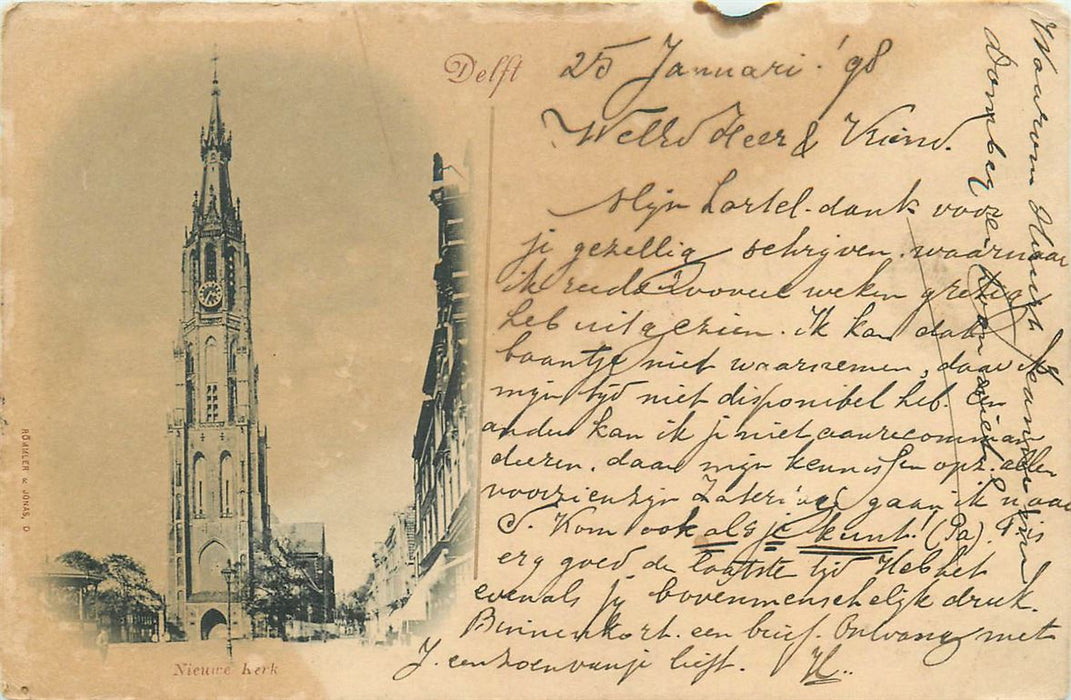 Delft
25 Januari '98
Wel Ed Heer & Vriend.
Mijn hartel. dank voor
je gezellig schrijven. waarnaar
ik reeds zooveel weken gretig
heb uitgezien. Ik kan dat
baantje niet waarnemen, daar ik
mijn tijd niet disponibel heb. En
ander kan ik je niet aanrecomman
deeren, daar mijn kennissen opz. allen
voorzien zijn Zaterdag gaan ik naar
S. Kom ook als je kunt! (Pa).
erg goed de laatste tijd Heb het
evenals jij bovenmenschelijk druk.
Binnenkort een brief. Ontvang met
J. een zoen van je liefh. H..
Waarom
van
Nieuwe Kerk
RÖMMLER & JONAS, D